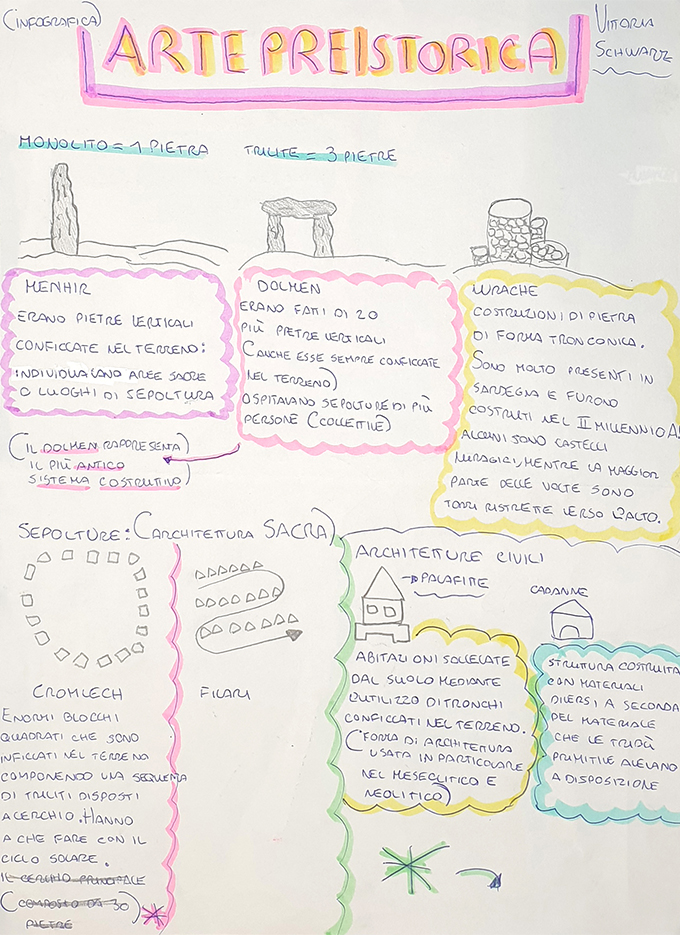 (INFOGRAFICA)
ARTE PREISTORICA
VITTORIA
SCHWARZ
MONOLITO = 1 PIETRA
TRILITE = 3 PIETRE
MENHIR
ERANO PIETRE VERTICALI
CONFICCATE NEL TERRENO:
INDIVIDUAVANO AREE SACRE
O LUOGHI DI SEPOLTURA
DOLMEN
ERANO FATI DI 2 O
PIÙ PIETRE VERTICALI
(ANCHE ESSE SEMPRE CONFICCATE
NEL TERRENO)
OSPITAVANO SEPOLTURE DI PIÙ
PERSONE (COLLETTIVE)
(IL DOLMEN RAPPRESENTA)
IL PIÙ ANTICO
SISTEMA COSTRUTIVO)
NURAGHE
COSTRUZIONI DI PIETRA
DI FORMA TRONCONICA.
SONO MOLTO PRESENTI IN
SARDEGNA E FURONO
COSTRUTI NEL II MILLENNIO A
ALCUNI SONO CASTELLI
NURAGICI, MENTRE LA MAGGIOR
PARTE DELLE VOLTE SONO
TORRI RISTRETTE VERSO L'ALTO.
SEPOLTURE: (ARCHITETTURA SACRA)
CROMLECH
ENORMI BLOCCHI
QUADRATI CHE SONO
INFICCATI NEL TERRENO
COMPONENDO UNA SEQUENZA
DI TRILITI DISPOSTI
A CERCHIO. HANNO
A CHE FARE CON IL
CICLO SOLARE.
IL CERCHIO PRINCIPALE
(COMPOSTO DA 30)
PIETRE
FILARI
ARCHITETTURE CIVILI
PALAFITTE
ABITAZIONI SOLLEVATE
DAL SUOLO MEDIANTE
L'UTILIZZO DI TRONCHI
CONFICCATI NEL TERRENO.
(FORMA DI ARCHITETTURA
USATA IN PARTICOLARE
NEL MESEOLITICO E
NEOLITICO)
CAPANNE
STRUTTURA COSTRUITA
CON MATERIALI
DIVERSI A SECONDA
DEL MATERIALE
CHE LE TRIBÙ
PRIMITIVE AVEVANO
A DISPOSIZIONE